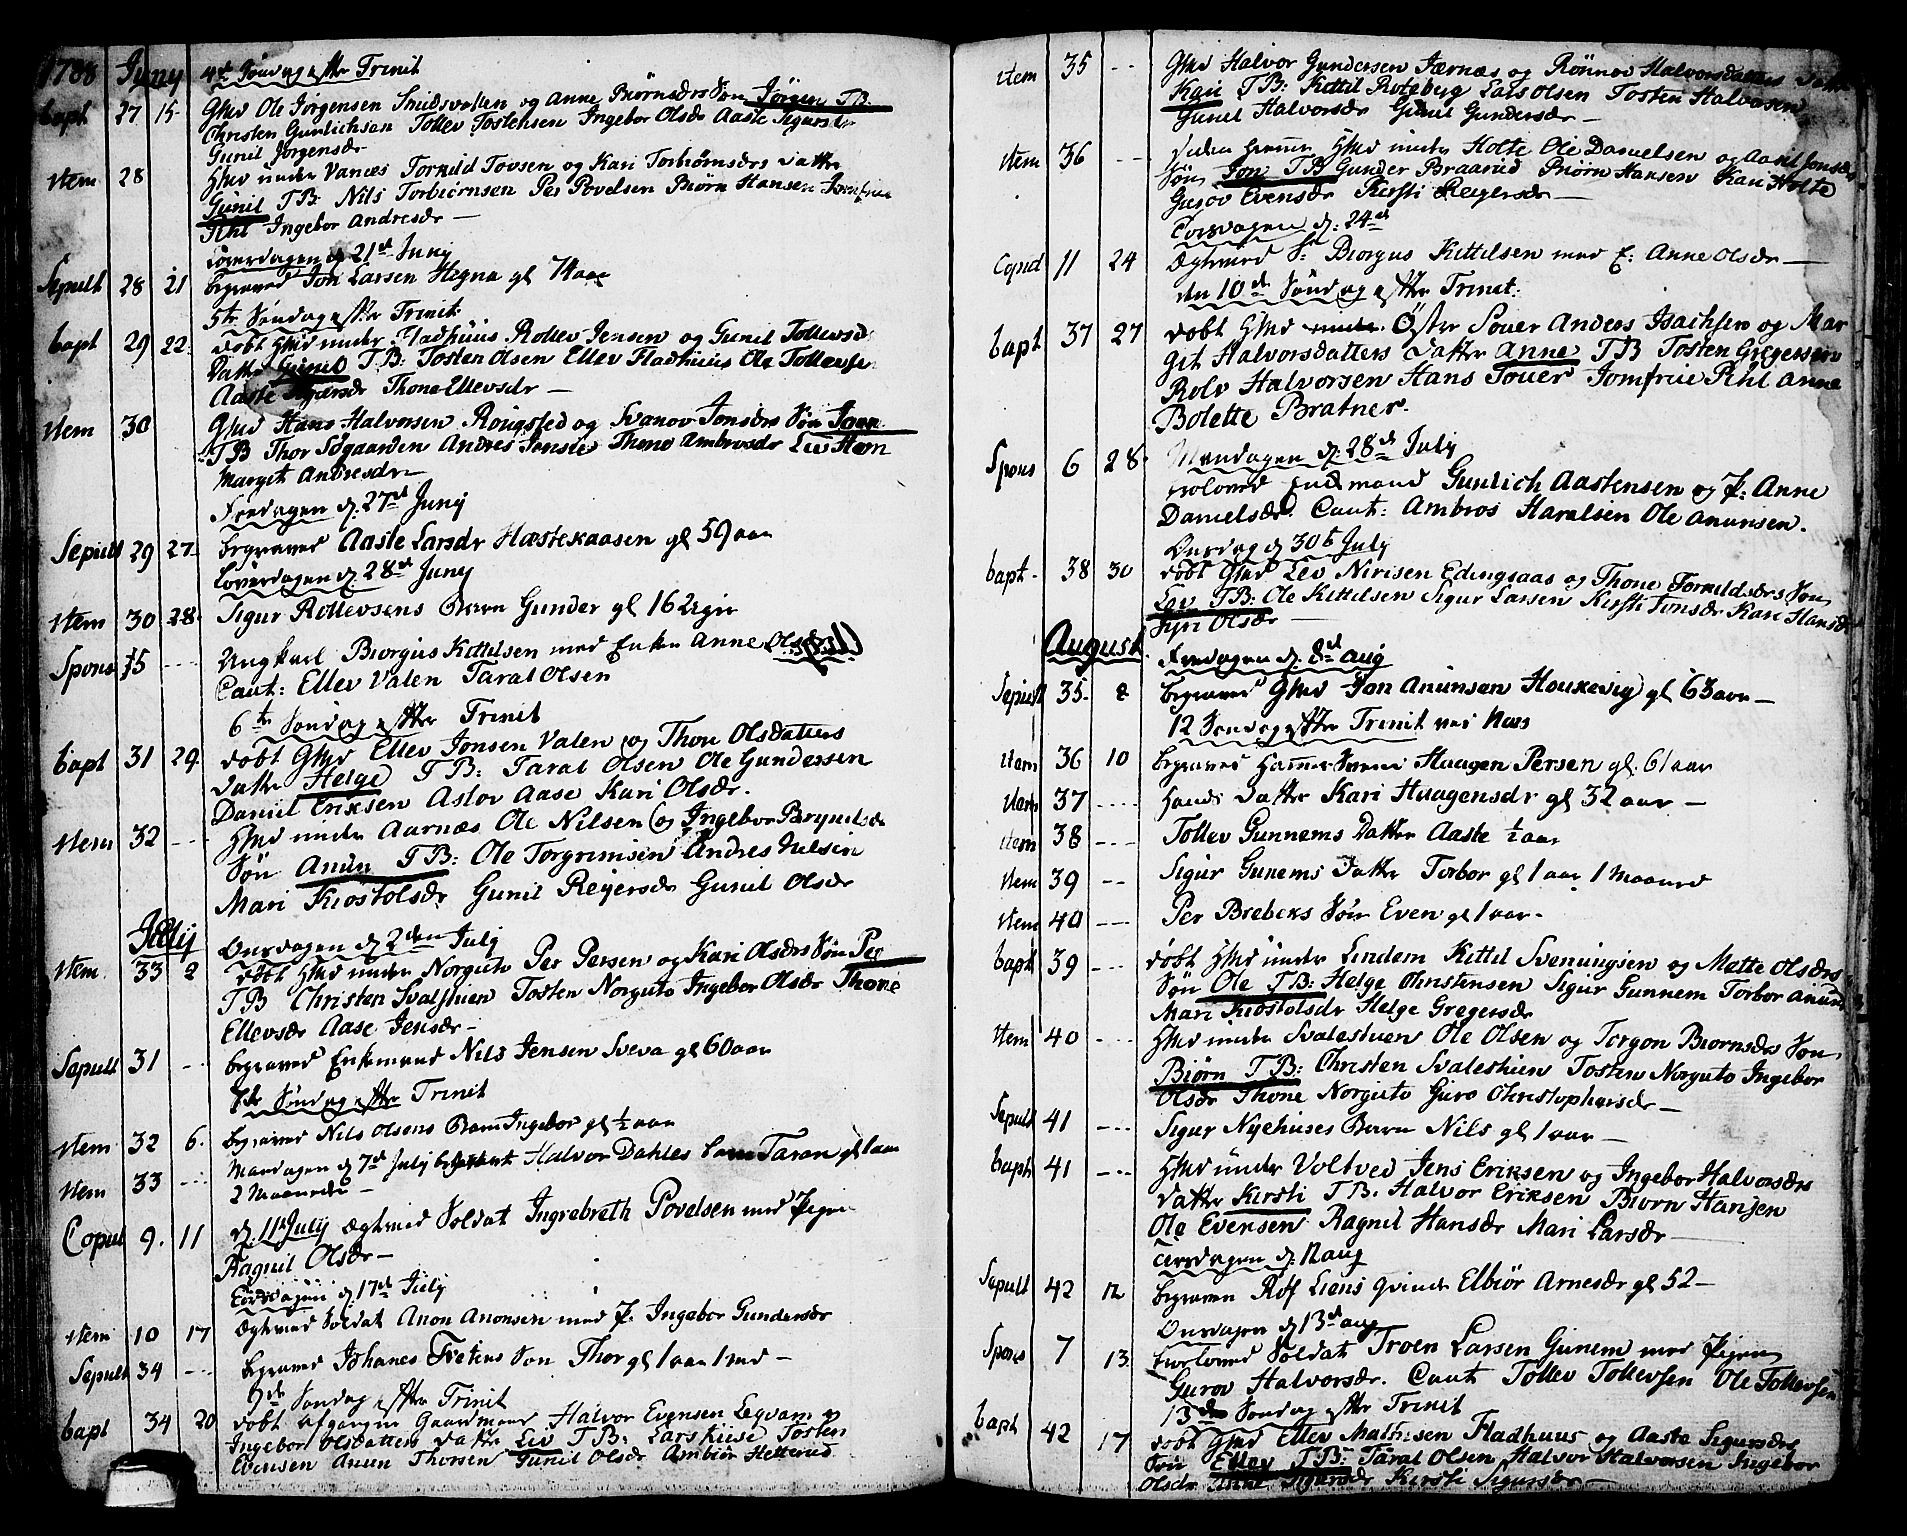 1788 Juny 4de Søndag efter Trinit
bapt 27 15 Ghd Ole Jørgensen Smidsvolen og Anne Biørnsdrs Søn Jørgen TB.
Christen Gunlichsen Tollev Tostensen Ingebor Olsdr Aaste Sigursdr
Gunil Jørgensdr
Item 28 Ghd under Vances Tormild Tovsen og Kari Torbiørnsdrs Datter
Gunil TB: Nils Torbiørnsen Per Povelsen Biørn Hansen Jomfrue
Pihl Ingebor Andresdr —
Løverdagen d. 21de Juny
Sepult 28 21 begraved Jon Larsen Hegna gl 74 aar
5te Søndag efter Trinit:
bapt 29 22 døbt Ghd under Fladhuus Rollev Jensen og Gunil Tollevsd
Datter Gunil TB: Tosten Olsen Ellev Fladhuus Ole Tollevse
Aaste Thone Ellevsdr —
Item 30 Ghd Hans Halvorsen Rougsted og Svanov Jonsdrs Søn
TB Thor Søgaarden Andres Jensen Thone Ambrosdr Liv Hem
Margit Andresdr
Fredagen d. 27de Juny
Sepult 29 27 begraved Aaste Larsdr Hæstekaasen gl 59 aar
Løverdagen d. 28de Juny
Item 30 28 Sigur Rollevsens Barn Gunder gl 16 Uger
Spons 5 --- Ungkarl Biorgus Kittilsen med Enken Anne Olsdr
Caut: Ellev Valen Taral Olsen
6te Søndag efter Trinit
bapt 31 29 døbt Ghd Ellev Jonsen Valen og Thon Olsdatters
Datter Helge TB: Taral Olsen Ole Gundersen
Daniil Eriksen Aslov Aase Kari Olsdr.
Item 32 -- Ghd under Aarnæs Ole Nilsen og Ingebor Brynilsdr
Søn Anun TB: Ole Torgrimsen Andres Nilsen
Mari Kiostolsdr Gunil Reyersdr Gunil Olsdr
July Onsdagen d 2den July
Item 33 2 døbt Ghd under Norguto Per Persen og Kari Olsdrs Søn Per
TB Christen Svalstuen Tosten Norguto Ingebor Olsdr Thone
Ellevsdr Aase Jensdr —
Sepult 31 -- begraved Enkemand Nils Jensen Sveva gl 60 aar
Søndag efter Trinit
Item 32 6 begraved Nils Olsens Barn Ingebor gl ½ aar
Item 33 --- Mandagen d 7de July begravet Halvor Dahles barn Taran gl 1 aar
2 Maaneder —
Copul 9. 11 d. 11 July Ægtvied Soldat Ingrebreth Povelsen med Pigen
Ragnil Olsdr —
Torsdagen d 17de July
Item 10 17 Ægtvied Soldat Anon Anonsen med P. Ingebor Gundersdr
Sepult 34 --- begraved Johanes Tvetens Søn Thor gl 1 aar 1 md —
9de Søndag efter Trinit
bapt 34 20 døbt afgangne Gaardmand Halvor Evensen Legvam og
Ingebor Olsdatters Datter Liv TB: Lars Tosten
Evensen Anun Thorsen Gunil Olsdr Ambiør Hetterud
Item 35 -- Ghd Halvor Gundersen Jærnæs og Rønnov Halvorsdatters Datter
Kari TB: Kittil Roteberg Lars Olsen Tosten Halvorsen
Gunil Halvorsdr Gunil Gundersdr —
Item 36 --- Ghd under Holte Ole Danielsen og Aasil Jonsdr
Søn Jon TB Gunder Braarud Biørn Hansen Kari Holte
Gurov Evensdr Kirsti Reyersdr —
Torsdagen d: 24de
Copul 11 24 Ægtvied S: Biorgus Kittilsen med E: Anne Olsdr —
den 10de Søndag efter Trinit:
bapt 37 27 døbt Ghd Øster Souer Anders Isachsen og Mar
git Halvorsdatters Datter Anne TB Tosten Gregersen
Rolv Halvorsen Hans Souer Jomfrue Pihl Anne
Bolette Bratner.
Mandagen d: 28de July
Spons 6 28 trolovet Enkemand Gunlich Aastensen og P: Anne
Danielsdr. Caut: Ambros Haralsen Ole Anunsen.
Onsdag d 30te July
bapt 38 30 døbt Ghd Liv Nirisen Edingsaas og Thone Tormildsdrs Søn
Liv TB: Ole Kittilsen Sigur Larsen Kirsti Tonsdr Kari Hansdr
Syri Olsdr —
August Fredagen d: 8de Aug
Sepult 35 8 begraved Ghd Jon Anunsen Houkevig gl 63 aar —
12 Søndag efter Trinit ved Næs
Item 36 10 begraved Haagen Persen gl. 61 aar
Item 37 ---- Hands Datter Kari Haagensdr gl 32 aar —
Item 38 ---- Tollev Gunnems Datter Aaste ½ aar
Item 39 -- Sigur Gunems Datter Torbor gl 1 aar 1 Maaned
Item 40 --- Per Brebeks Søn Even gl 1 aar -
bapt 39 --- døbt Ghd under Lindem Kittil Sveningsen og Mette Olsdrs
Søn Ole TB: Helge Christensen Sigur Gunnem Torbor Anun
Mari Kiostolsdr Helge Gregersdr
Item 40 --- Ghd under Svalestuen Ole Olsen og Torgon Biornsdrs Søn
Biørn TB: Christen Svalestuen Tosten Norguto Ingebor
Olsdr Thone Norguto Guro Christophersdr —
Sepult 41 --- Sigur Nyehuses Barn Nils gl 1 aar —
bapt 41 --- Ghd under Voltved Jens Eriksen og Ingebor Halvorsdrs
Datter Kirsti TB. Halvor Eriksen Biorn Hansen
Ole Evensen Ragnil Hansdr Mari Larsdr —
Tirsdagen d. 12 aug
Sepult 42 12 begraven Rolf Liens Qvinde Elbiør Arnesdr gl 52 —
Onsdagen d 13de aug
Spons 7 13 trolovet Soldat Troen Larsen Gunem med Pigen
Gurov Halvorsdr. Caut Tollev Tollevsen Ole Tollevsen
13de Søndag efter Trinit
bapt 42 17 døbt Ghd Ellev Mathisen Fladhuus og Aaste Sigursdrs
Søn Ellev TB: Taral Olsen Halvor Halvorsen Ingebor
Olsdr Anne Sigursdr Kirsti Sigursdr —